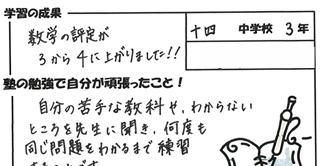 学習の成果
数学の評定が
3から4に上がりました!!
十四 中学校 3年
塾の勉強で自分が頑張ったこと!
自分の苦手な教科や、わからない
ところを先生に聞き、何度も
同じ問題をわかるまで練習